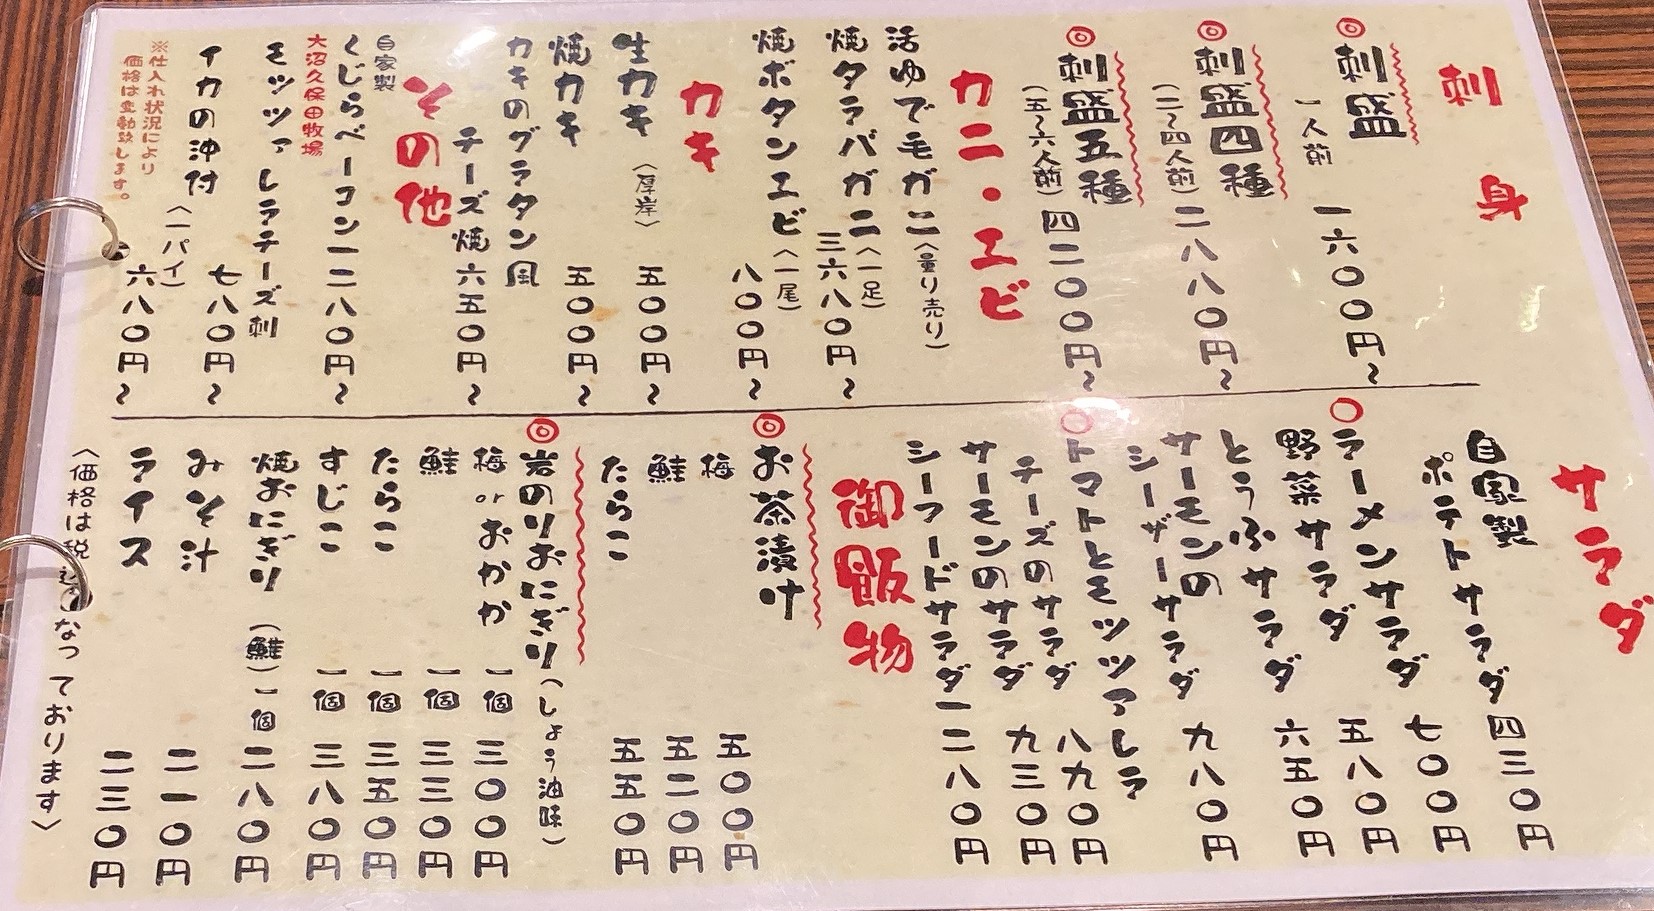 刺身
◎刺盛
一人前
一六〇〇円〜
◎刺盛四種
(二〜四人前)
二八八〇円〜
◎刺盛五種
(五〜六人前)
四二〇〇円〜
カニ・エビ
活ゆで毛ガニ(量り売り)
焼タラバガニ(一足)
三六八〇円〜
焼ボタンエビ(一尾)
八〇〇円〜
カキ
生カキ〈厚岸〉
五〇〇円〜
焼カキ
五〇〇円〜
カキのグラタン風
チーズ焼 六五〇円〜
その他
自家製
くじらベーコン 一二八〇円〜
大沼久保田牧場
モッツァレラチーズ刺
七八〇円〜
イカの沖付
〈一パイ〉
六八〇円〜
※仕入れ状況により
価格は変動致します。
サラダ
自家製
ポテトサラダ 四三〇円
○ラーメンサラダ 七〇〇円
野菜サラダ 五八〇円
とうふサラダ 六五〇円
サーモンの
シーザーサラダ 九八〇円
○トマトとモッツァレラ
チーズのサラダ 八九〇円
サーモンのサラダ 九三〇円
シーフードサラダ 一二八〇円
御飯物
◎お茶漬け
梅 五〇〇円
鮭 五二〇円
たらこ 五五〇円
◎岩のりおにぎり(しょう油味)
梅orおかか 一個 三〇〇円
鮭 一個 三三〇円
たらこ 一個 三五〇円
すじこ 一個 三八〇円
焼おにぎり(鮭)一個 二八〇円
みそ汁 二一〇円
ライス 二三〇円
〈価格は税込となっております〉